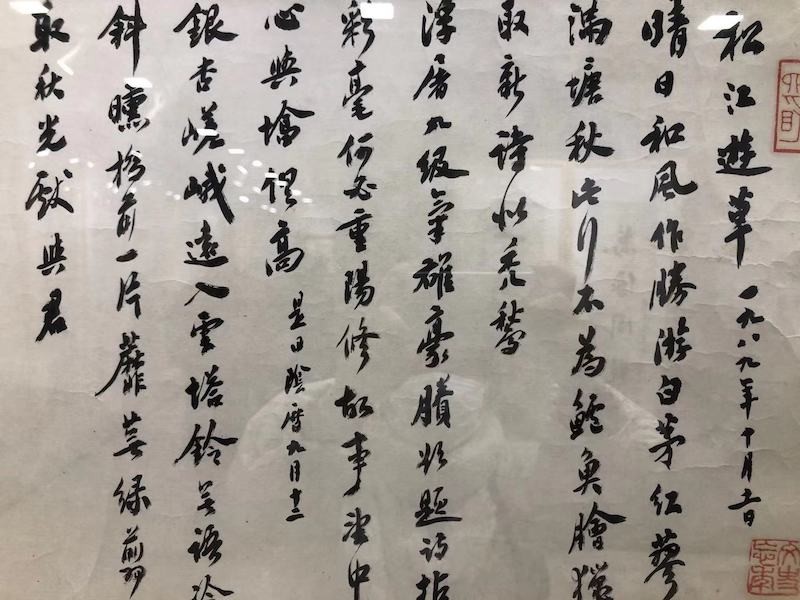 松江遊草 一九八九年十月十一日
晴日和風作勝游白茅紅蓼
滿塘秋此行不為鱸魚膾獵
取新詩似禿鶖
浮屠九級氣雄豪賸欲題詩拈
彩毫何必重陽修故事望中
心與塔俱高 是日陰曆九月十二
銀杏嵯峨遠入雲塔鈴無語冷
斜曛橋前一片蘼蕪綠翦
取秋光獻與君